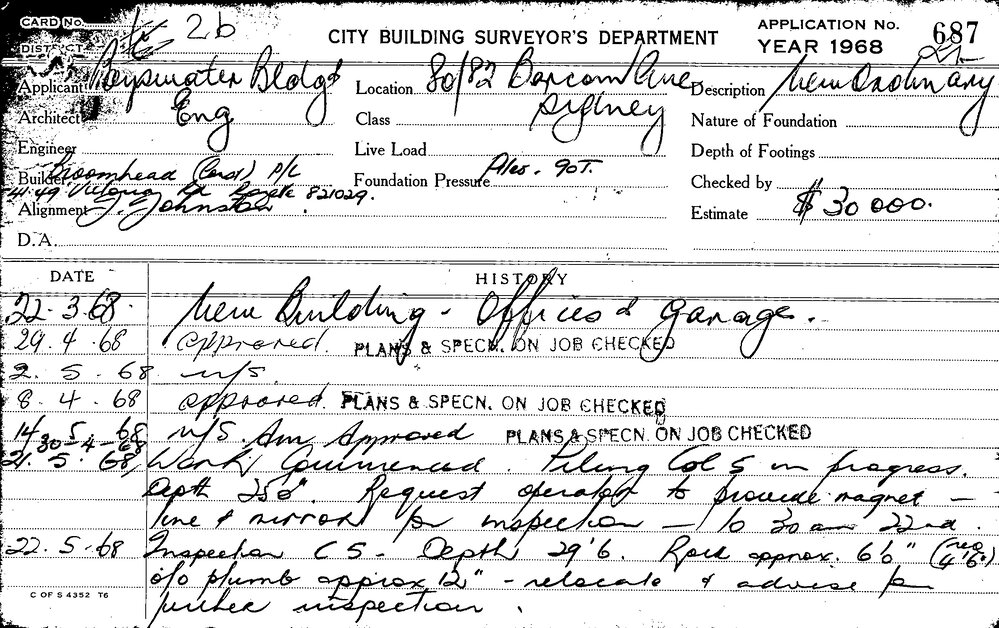 CARD No. 2b
DISTRICT
CITY BUILDING SURVEYOR'S DEPARTMENT
APPLICATION No. 687
YEAR 1968
Applicant Bayswater Bldgs
Location 80/82 Barcom Ave
Description New Ordinary
Architect Eng
Class Sydney
Nature of Foundation
Engineer
Live Load
Depth of Footings
Builder Broomhead (Const) P/L
Foundation Pressure Ples. 90T.
Checked by
Victoria Rd 821029.
Alignment J. Johnston
Estimate $30 000.
D.A.
DATE HISTORY
22.3.68 New Building - Offices & Garage.
29.4.68 approved. PLANS & SPECN. ON JOB CHECKED
2.5.68 n/s.
8.4.68 approved. PLANS & SPECN. ON JOB CHECKED
14.5.68 n/s. Am Approved PLANS & SPECN. ON JOB CHECKED
30-4-68
21.5.68 Work Commenced. Piling Col 5 in progress.
Depth 25'0". Request operator to provide magnet -
line & mirror for inspection - 10 30 am 22nd.
22.5.68 Inspection C5 - Depth 29'6. Rock approx. 6'6" (req 4'6")
o/o plumb approx 12" - relocate & advise for
further inspection.
C OF S 4352 T6